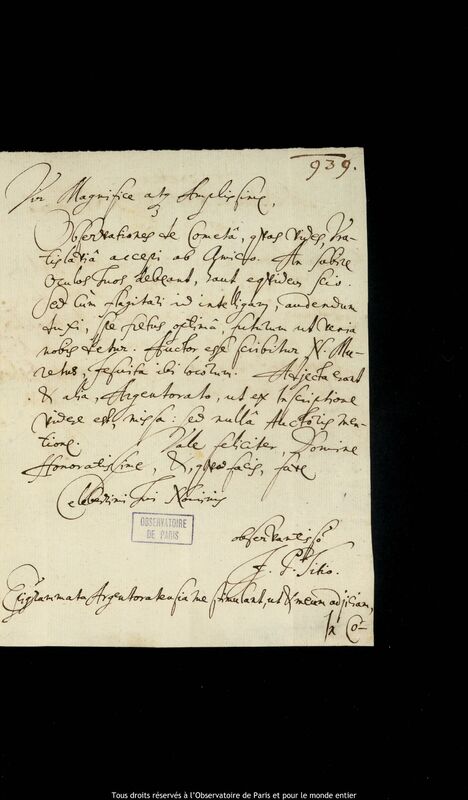 939.
Vir Magnifice atq Amplissime,
Observationes de Cometâ, quas vides, Vra-
tislaviâ accepi ab Amico. An subire
oculos Tuos debeant, haut equidem scio.
Sed cùm flagitari id intelligam, audendum
duxi, spe fretus optimâ, futurum ut venia
nobis detur. Auctor esse scribitur N. Mu-
retus, Jesuita ibi locorum. Adjecta erant
& alia, Argentorato, ut ex Inscriptione
videre est, missa: sed nullâ Auctoris men-
tione. Vale feliciter, Domine
Honoratissime, &, quod facis, fave
Celeberrimi Tui Nominis
OBSERVATOIRE
DE PARIS
observantissō
Titio.
Epigrammata Argentoratensia me stimulant, ut & meum adjiciam,
In Co-
Tous droits réservés à l'Observatoire de Paris et pour le monde entier